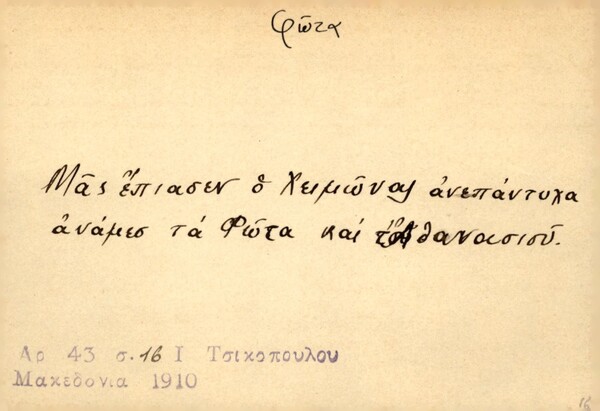 Φῶτα
Μᾶς ἔπιασεν ὁ Χειμῶνας ἀνεπάντυχα
ἀνάμεσ τά Φῶτα καί τἈθανασιοῦ.
Αρ 43 σ. 16 Ι Τσικοπουλου
Μακεδονια 1910